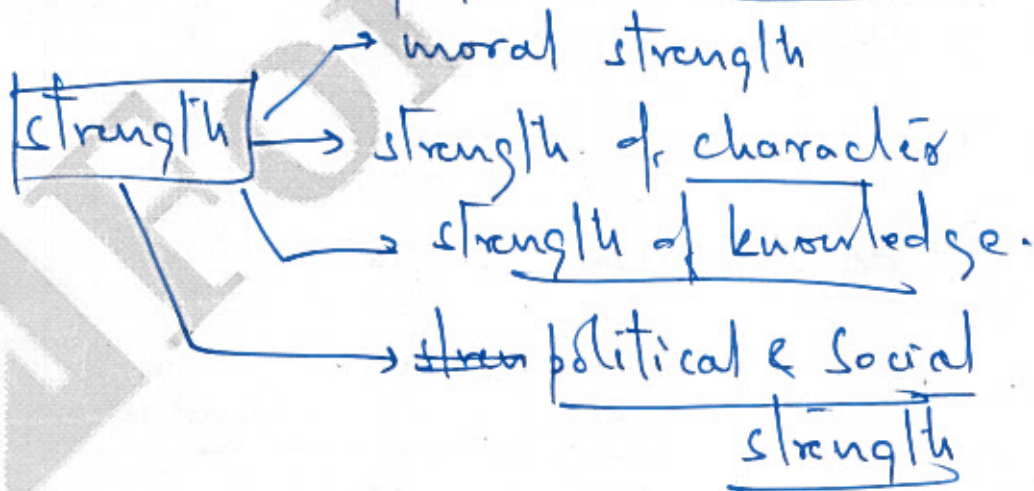 moral strength
strength
strength of character
strength of knowledge.
political & social
strength